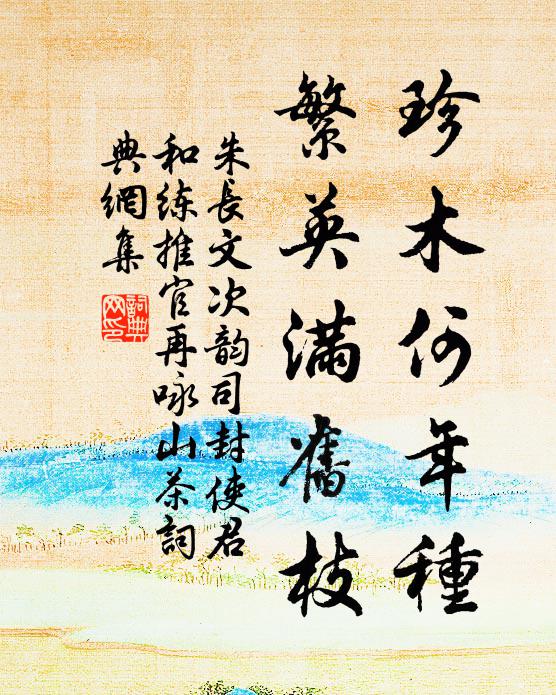 珍木何年種
繁英滿舊枝
朱長文次韵司封使君
和练推官再咏山茶詞
典網集
詞典网印